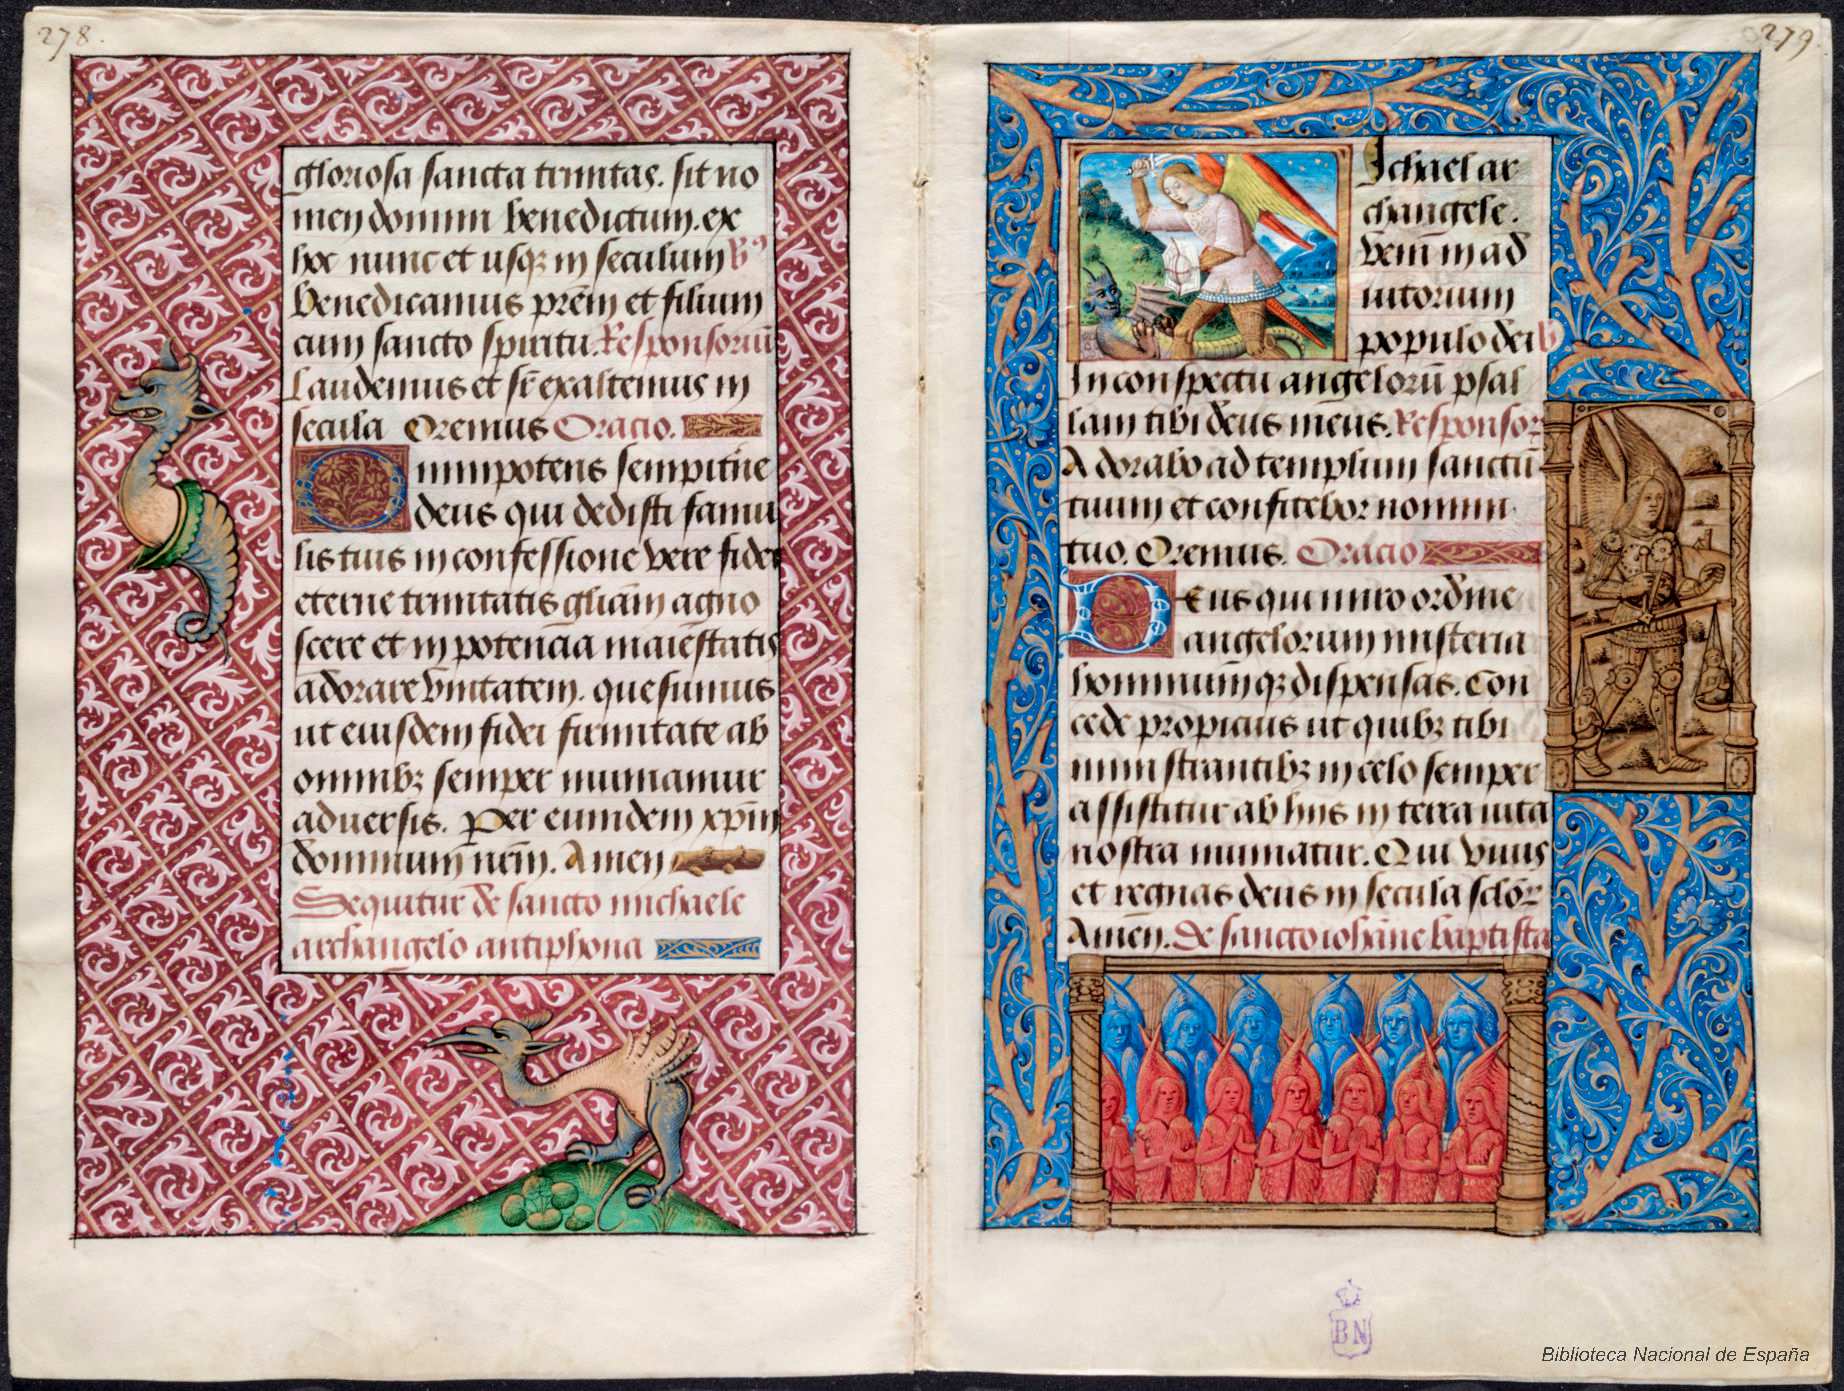 278.
gloriosa sancta trinitas. sit no
men domini benedictum. ex
hoc nunc et usqꝫ in seculum v̄
Benedicamus prēm et filium
cum sancto spiritu. Responsoriū
Laudemus et sr̄ exaltemus in
secula Oremus Oracio.
Omnipotens sempitne
deus qui dedisti famu
lis tuis in confessione vere fidei
eterne trinitatis gliām agno
scere et in potencia maiestatis
adorare vnitatem. quesumus
ut eiusdem fidei firmitate ab
omnibꝫ semper muniamur
aduersis. Per eumdem xpm̄
dominum nrm̄. Amen
Sequitur de sancto michaele
archangelo antiphona
279
Michael ar
changele.
veni in ad
iutorium
populo dei v̄
In conspectu angelorū psal
lam tibi deus meus. Responsor
Adorabo ad templum sanctū
tuum et confitebor nomini
tuo. Oremus. Oracio
Deus qui miro ordine
angelorum misteria
hominum̄qꝫ dispensas. Con
cede propicius ut quibꝫ tibi
ministrantibꝫ in celo semper
assistitur ab hiis in terra uita
nostra muniatur. Qui viuis
et regnas deus in secula sclōꝝ
Amen. De sancto iohāne baptista
BN
Biblioteca Nacional de España